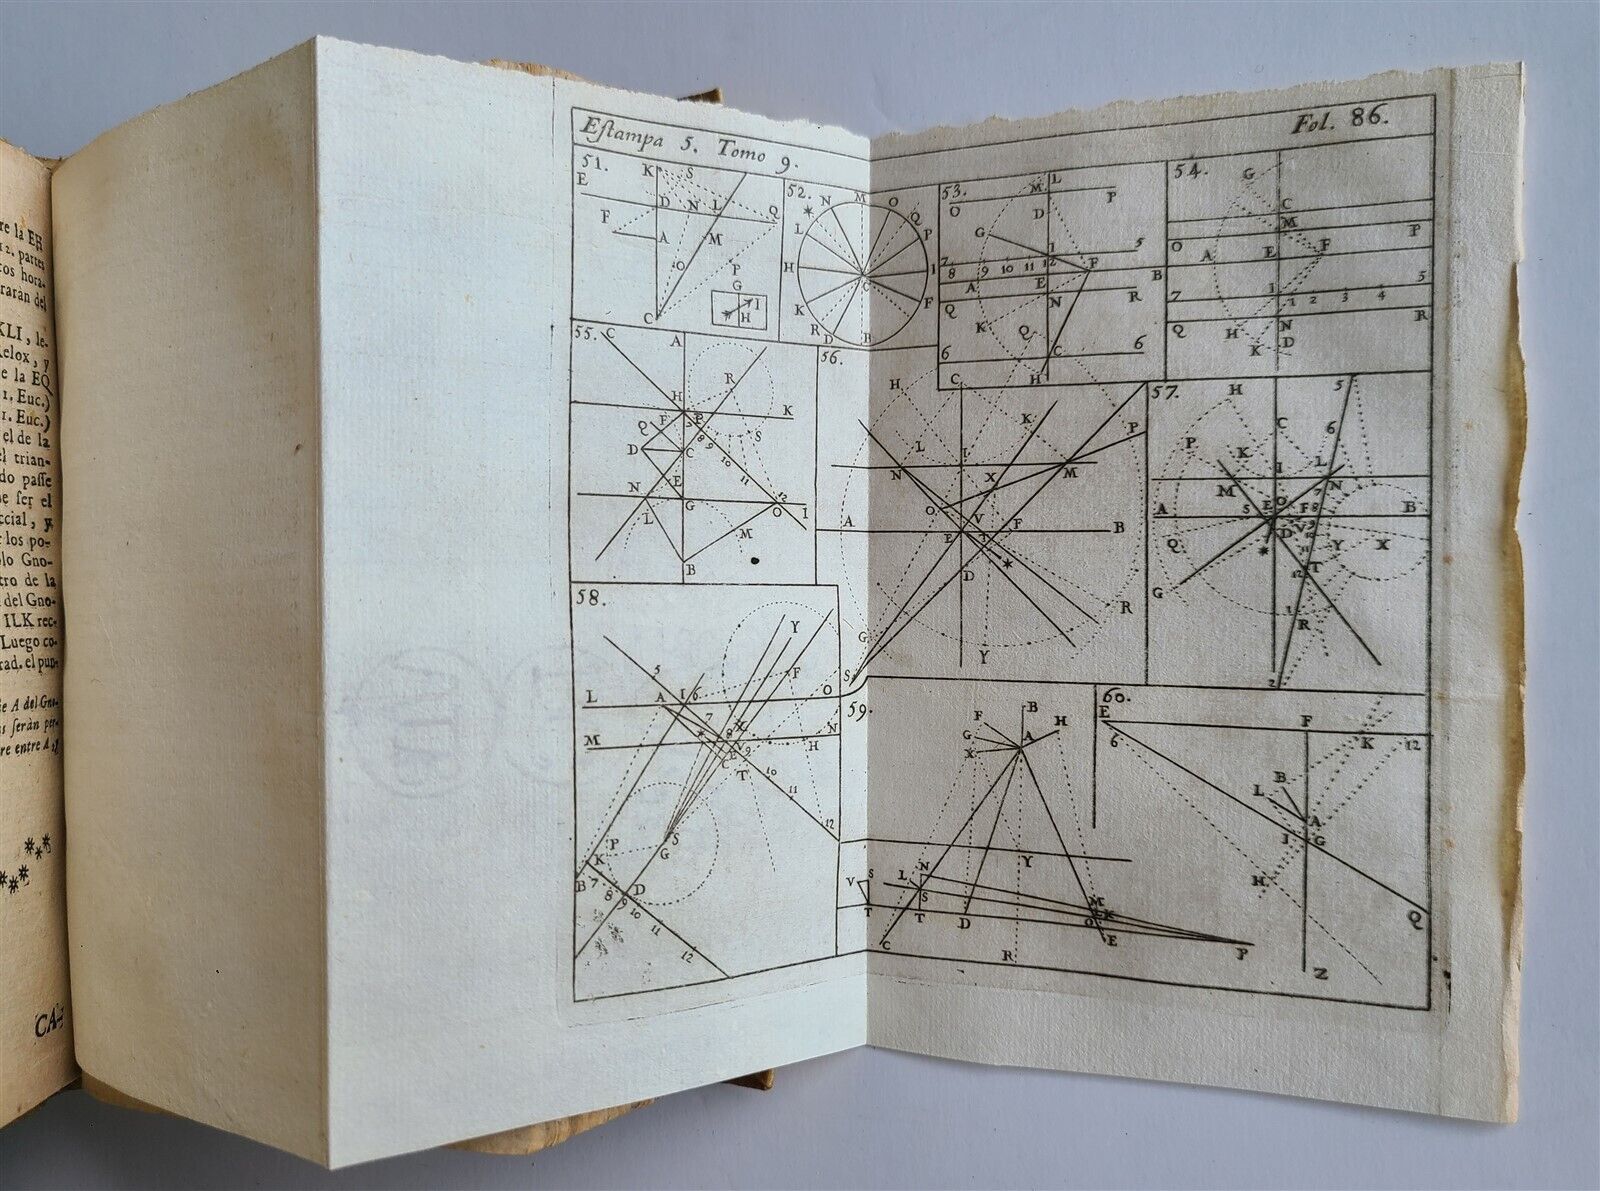 re la EH
12. partes
tos hora-
raran del
XLI, le-
Relox, y
e la EQ
1. Euc.)
1. Euc.)
el de la
el trian-
do paſſe
ue ſer el
ccial, y
r los po-
olo Gno-
tro de la
del Gno-
ILK rec-
Luego co-
rad. el pun-
ie A del Gno-
as ſeràn per-
re entre A, y
CA-
Eſtampa 5. Tomo 9.
Fol. 86.
51.
K S
E
D N L Q
F
A M
O P
G
I
H
C
52.
N M O
Q
L P
H I
C
K F
R D B
53.
L
M P
O D
G
I 5
7 8 9 10 11 12 F
A E B
Q N R
K Q
6 C 6
H
54.
G
C
M
O P
A E F
7 I 1 2 3 4 5
Q H N R
K D
55.
C A
R
H
K
Q F
8 9 S
D C 10
E 11
N 12
G O I
L M
B
56.
H C
K
L I P
N X M
O
A V F B
E
D
R
G
S Y
57.
H 5
C 6
P K
I L
M N
O 7
A 5 E F 8 B
V 9
Q D Y X
T
G 12
1
R
2
58.
Y
5 F
L A I 6 O
7
M X 8 N
E V 9 H
C T 10
11
S 12
P G
K
B 7 D
8 9 10
11
12
59.
B
F H
G A
X
Y
N
V S L M
S K
T T D O
C E
R P
60.
E F
6 K 12
B
L
A
I G
H
Q
Z